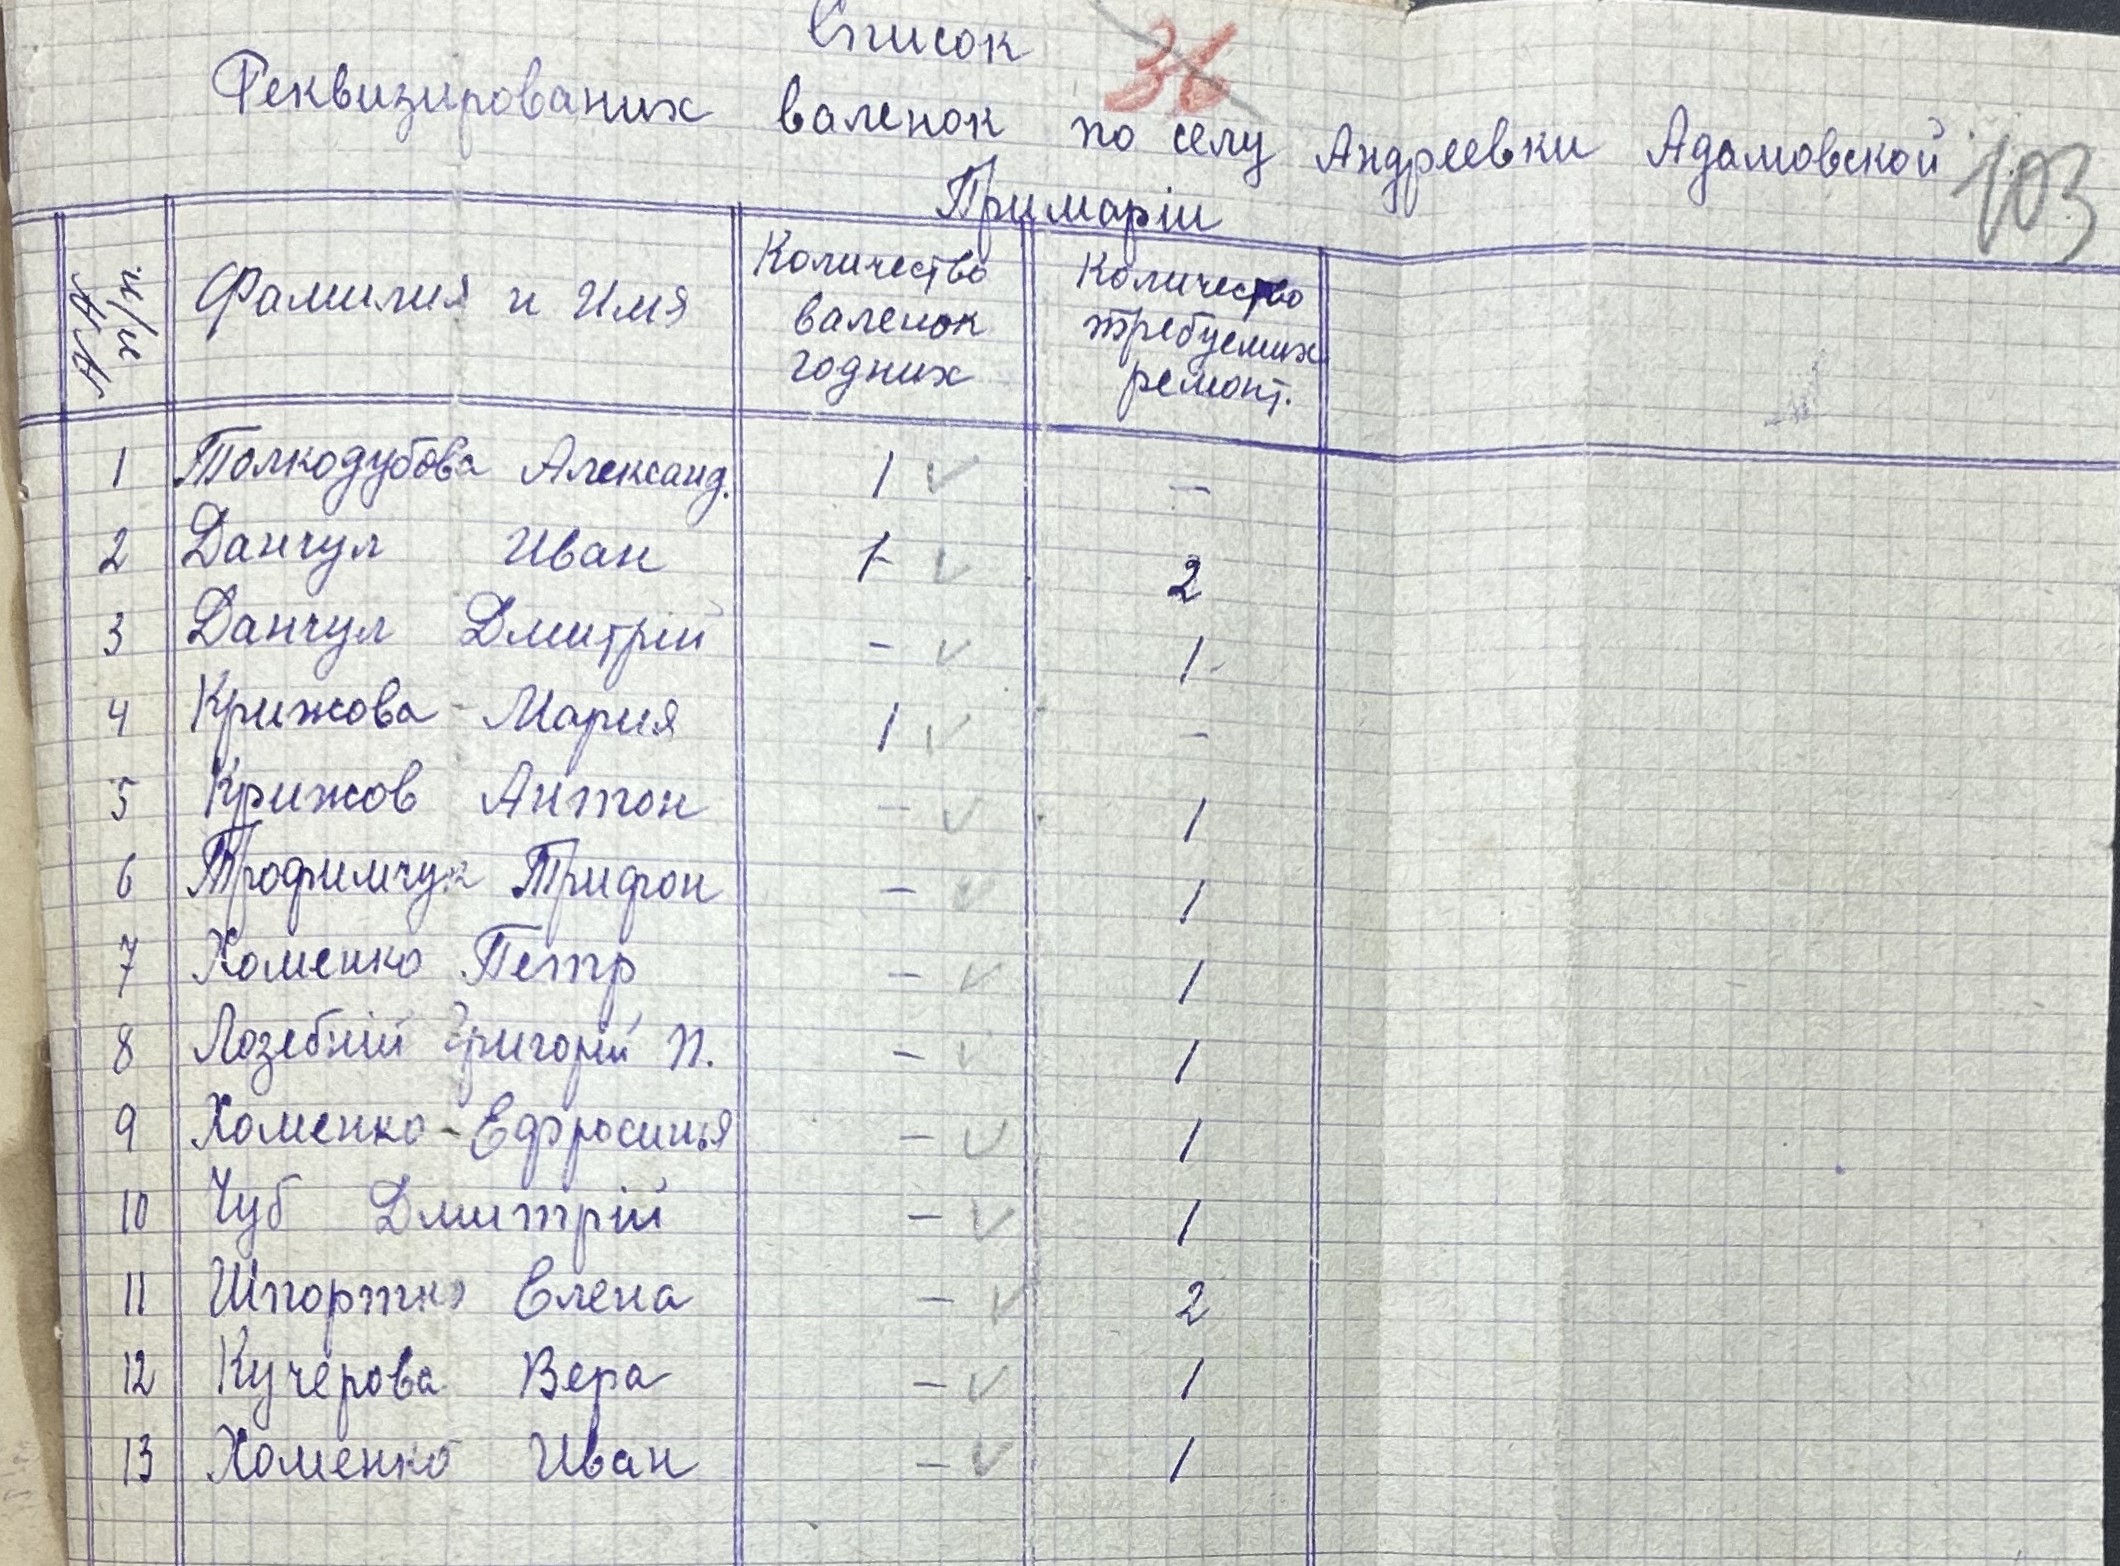 Список 36
Реквизированих валенок по селу Андреевки Адамовской 103
Примаріи
№№ п/п. Фамилия и Имя Количество валенок годних Количество требуемих ремонт.
1 Толкодубова Александ. 1 ✓ —
2 Данчул Иван 1 ✓ 2
3 Данчул Дмитрій - ✓ 1
4 Крижова Мария 1 ✓ -
5 Крижов Антон - ✓ 1
6 Трофимчук Трифон - ✓ 1
7 Хоменко Петр - ✓ 1
8 Лозебній Григорій П. - ✓ 1
9 Хоменко - Ефросинья - ✓ 1
10 Чуб Дмитрій - ✓ 1
11 Шпортко Елена - ✓ 2
12 Кучерова Вера - ✓ 1
13 Хоменко Иван - ✓ 1